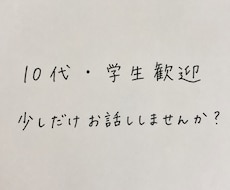 10代・学生歓迎
少しだけお話ししませんか?